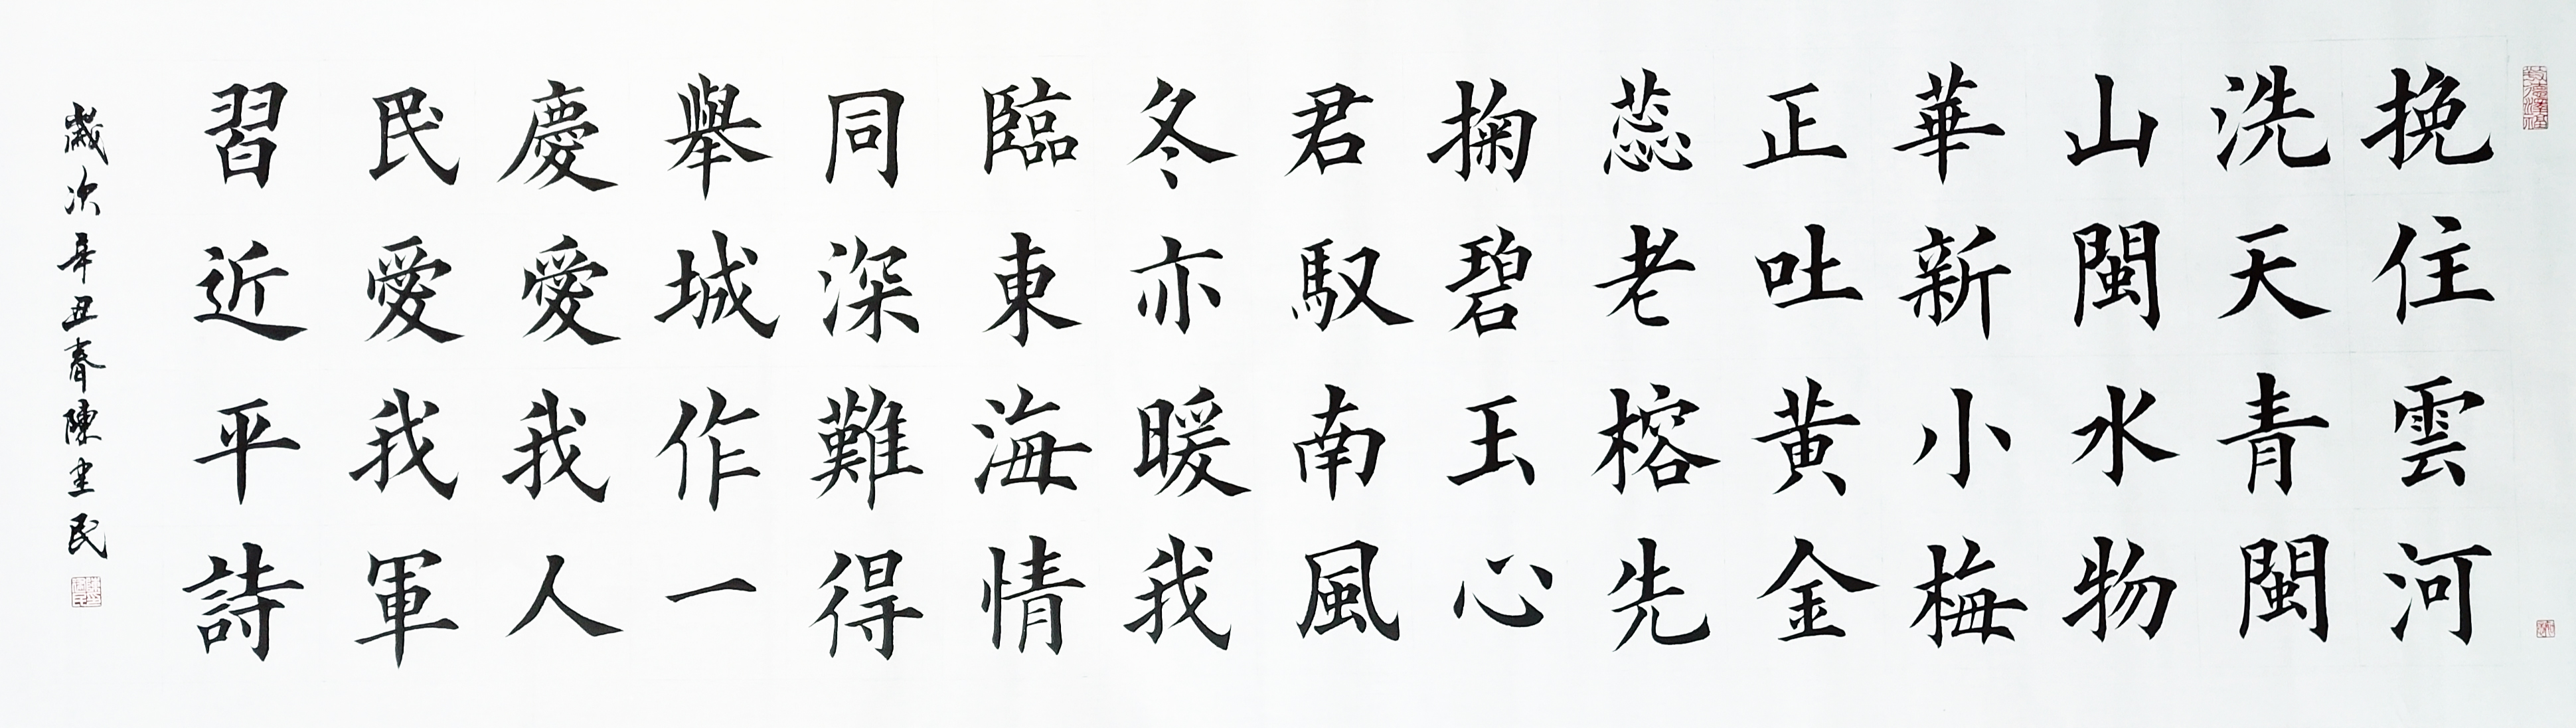 挽住雲河
洗天青閩
山閩水物
華新小梅
正吐黄金
蕊老榕先
掬碧玉心
君馭南風
冬亦暖我
臨東海情
同深難得
舉城作一
慶愛我人
民愛我軍
習近平詩
歲次辛丑春陳奎民